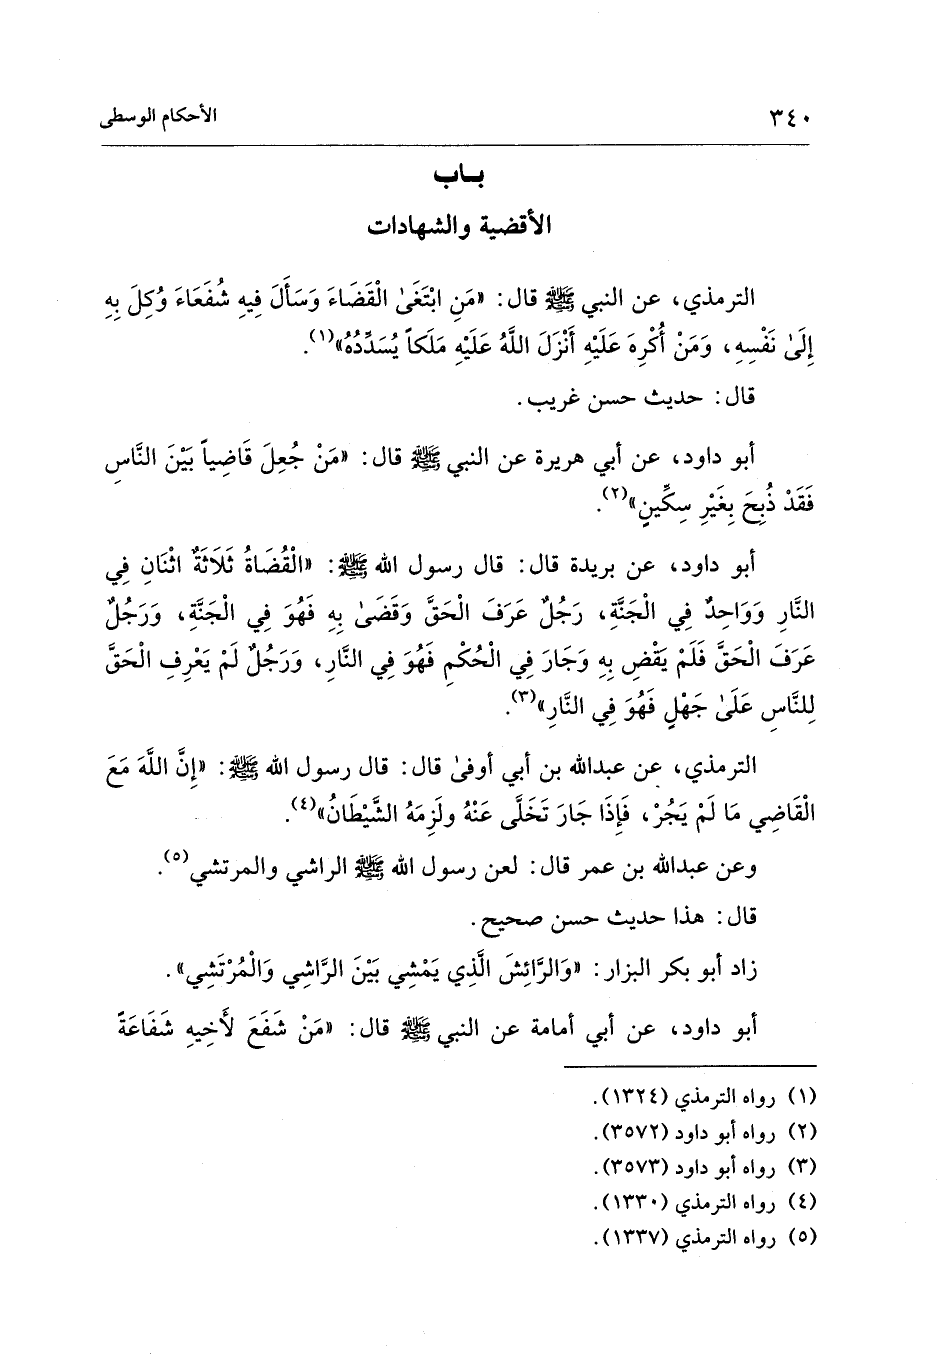 ٣٤٠ الأحكام الوسطى
بـاب
الأقضية والشهادات
الترمذي، عن النبي ﷺ قال: «مَنِ ابْتَغَىٰ الْقَضَاءَ وَسَأَلَ فِيهِ شُفَعَاءَ وُكِلَ بِهِ
إِلَىٰ نَفْسِهِ، وَمَنْ أُكْرِهَ عَلَيْهِ أَنْزَلَ اللَّهُ عَلَيْهِ مَلَكاً يُسَدِّدُهُ»(١).
قال: حديث حسن غريب.
أبو داود، عن أبي هريرة عن النبي ﷺ قال: «مَنْ جُعِلَ قَاضِياً بَيْنَ النَّاسِ
فَقَدْ ذُبِحَ بِغَيْرِ سِكِّينٍ»(٢).
أبو داود، عن بريدة قال: قال رسول الله ﷺ: «الْقُضَاةُ ثَلَاثَةٌ اثْنَانِ فِي
النَّارِ وَوَاحِدٌ فِي الْجَنَّةِ، رَجُلٌ عَرَفَ الْحَقَّ وَقَضَىٰ بِهِ فَهُوَ فِي الْجَنَّةِ، وَرَجُلٌ
عَرَفَ الْحَقَّ فَلَمْ يَقْضِ بِهِ وَجَارَ فِي الْحُكْمِ فَهُوَ فِي النَّارِ، وَرَجُلٌ لَمْ يَعْرِفِ الْحَقَّ
لِلنَّاسِ عَلَىٰ جَهْلٍ فَهُوَ فِي النَّارِ»(٣).
الترمذي، عن عبدالله بن أبي أوفىٰ قال: قال رسول الله ﷺ: «إِنَّ اللَّهَ مَعَ
الْقَاضِي مَا لَمْ يَجُرْ، فَإِذَا جَارَ تَخَلَّى عَنْهُ ولَزِمَهُ الشَّيْطَانُ»(٤).
وعن عبدالله بن عمر قال: لعن رسول الله ﷺ الراشي والمرتشي(٥).
قال: هذا حديث حسن صحيح.
زاد أبو بكر البزار: «وَالرَّائِشَ الَّذِي يَمْشِي بَيْنَ الرَّاشِي وَالْمُرْتَشِي».
أبو داود، عن أبي أمامة عن النبي ﷺ قال: «مَنْ شَفَعَ لأَخِيهِ شَفَاعَةً
(١) رواه الترمذي (١٣٢٤).
(٢) رواه أبو داود (٣٥٧٢).
(٣) رواه أبو داود (٣٥٧٣).
(٤) رواه الترمذي (١٣٣٠).
(٥) رواه الترمذي (١٣٣٧).